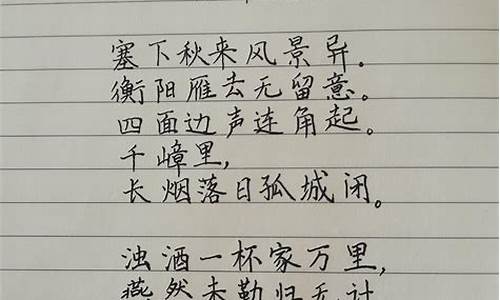 塞下秋来风景异。
衡阳雁去无留意。
四面边声连角起。
千嶂里，
长烟落日孤城闭。
浊酒一杯家万里，
燕然未勒归无计